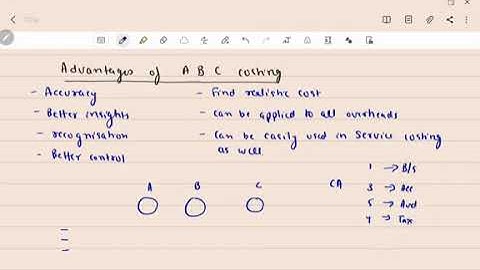 Advantages of ABC costing
- Accuracy
- Better insights
- recognisation
- Better control
- Find realistic cost
- can be applied to all overheads
- can be easily used in Service costing
as well
A B C
CA
1 → B/S
3 → Acc
5 → Aud
4 → Tax